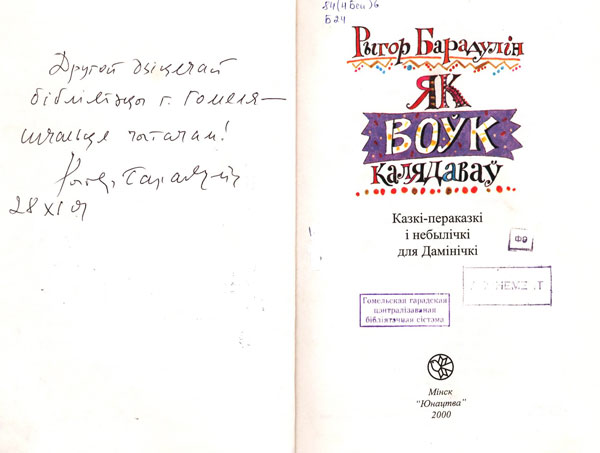 Другой дзіцячай
бібліятэцы г. Гомеля—
шчасця чытачам!
Рыгор Барадулін
28 XI
84(4Беи)6
Б24
Рыгор Барадулін
ЯК
ВОЎК
КАЛЯДАВАЎ
Казкі-пераказкі
і небылічкі
для Дамінічкі
ФВ
Гомельская гарадская
цэнтралізаваная
бібліятэчная сістэма
Мінск
"Юнацтва"
2000